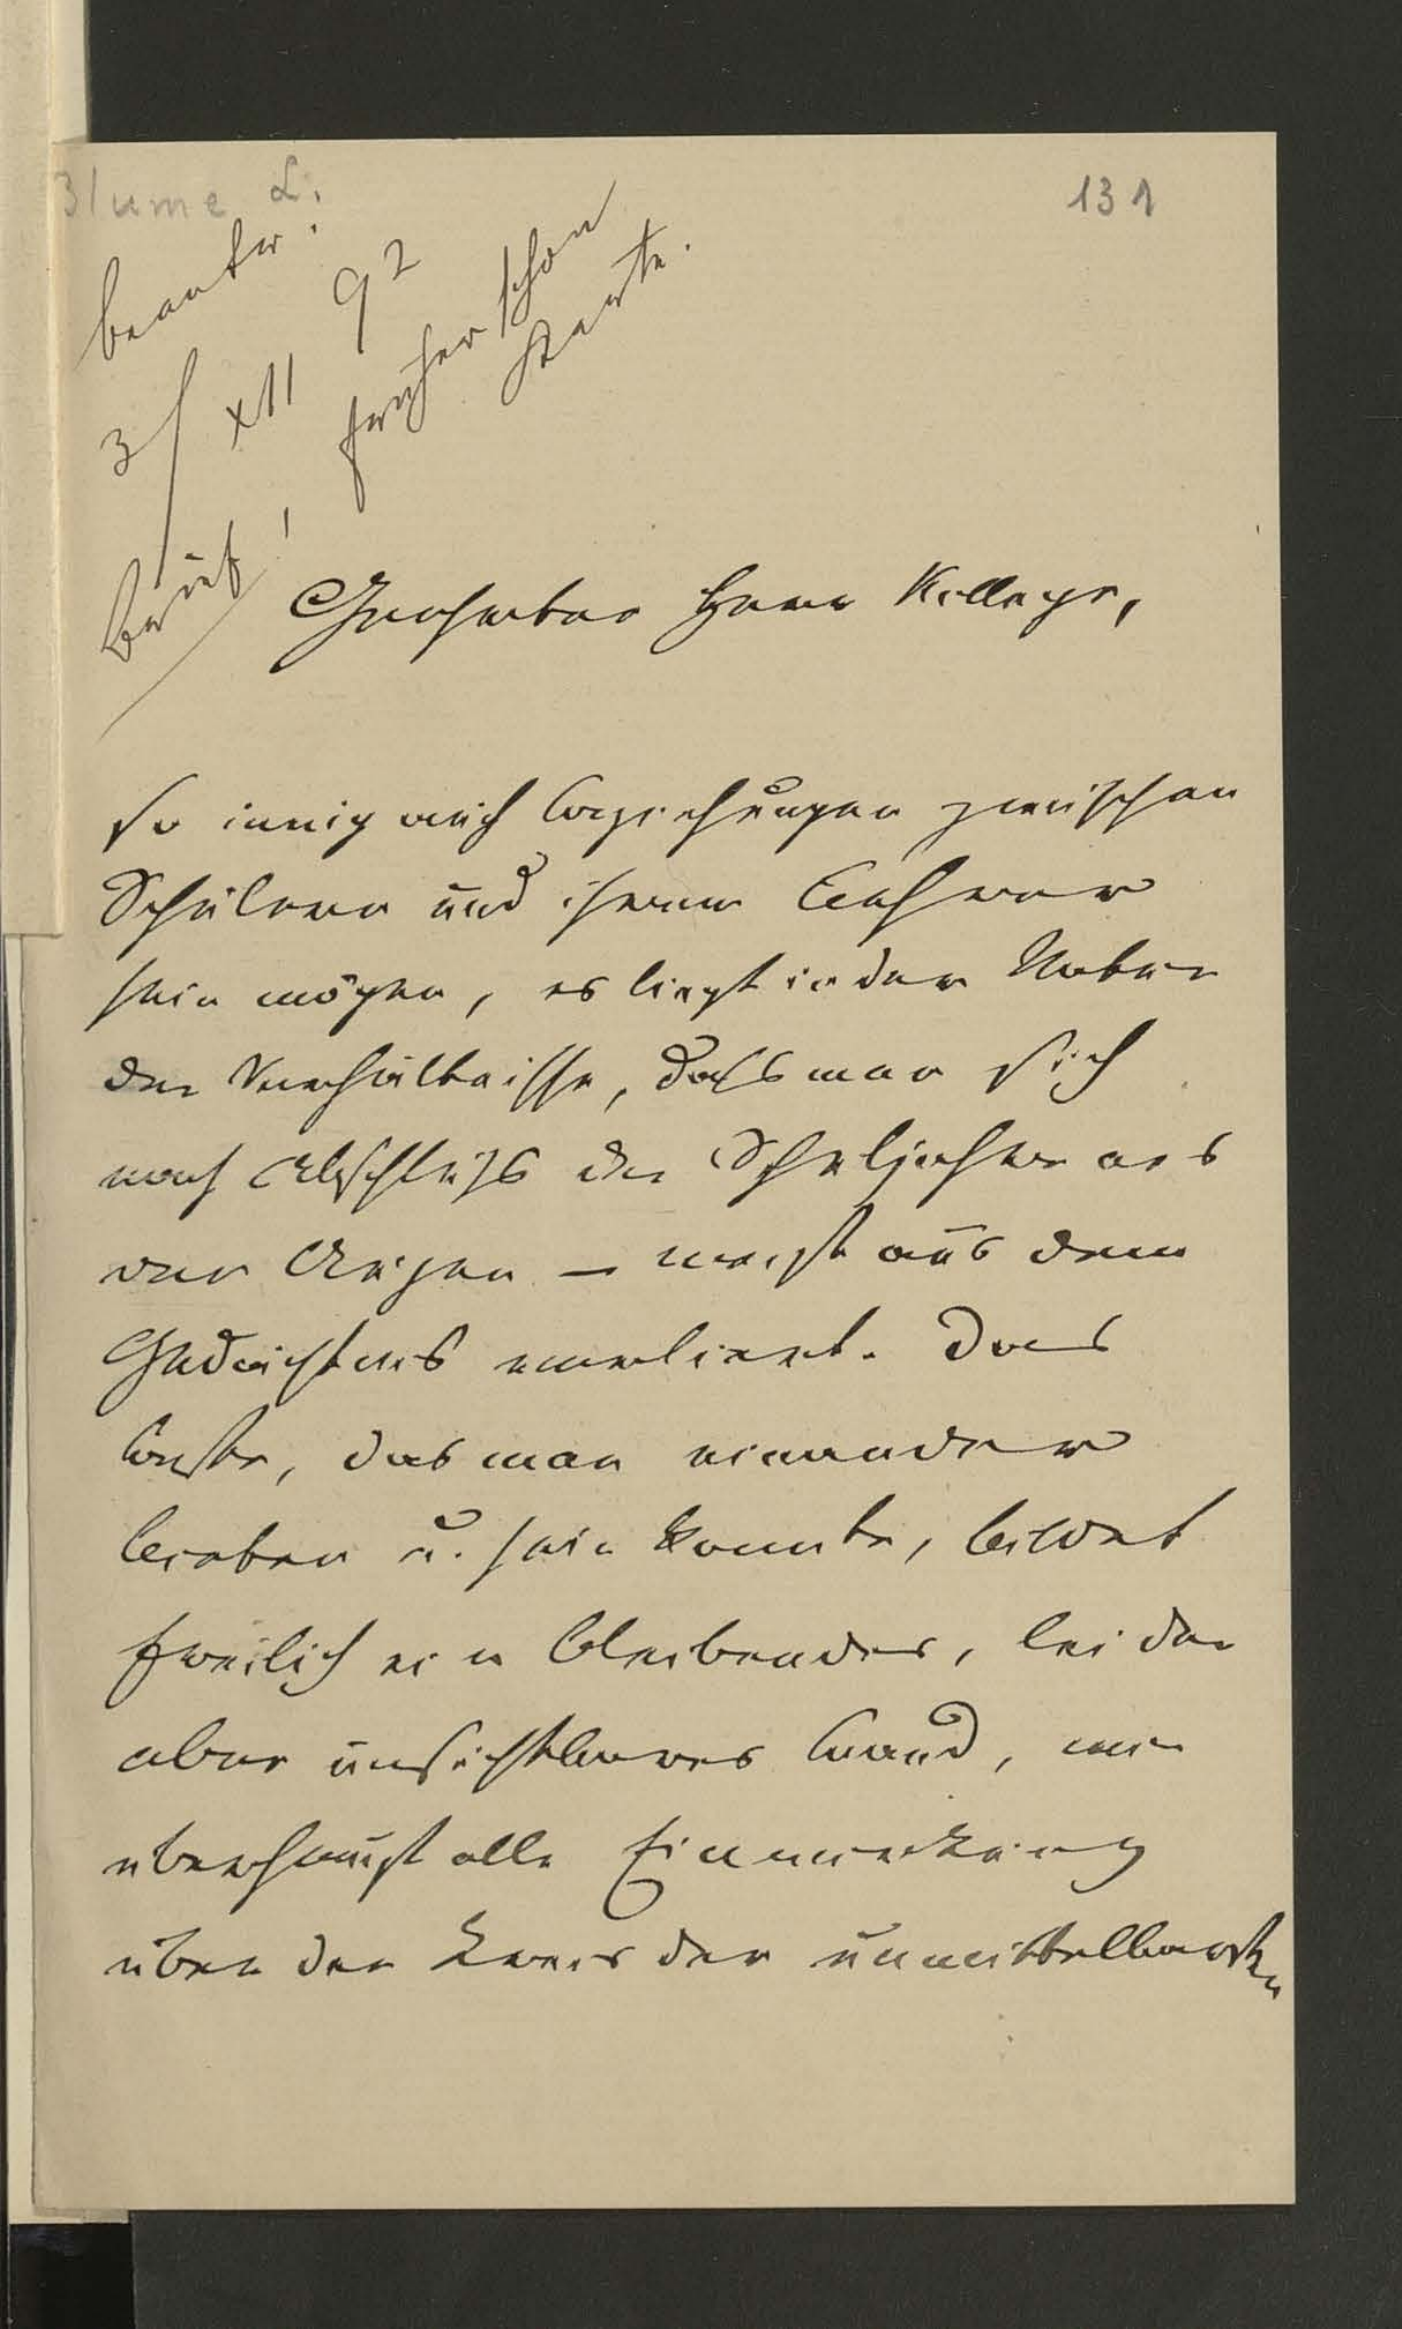 Blume L.
131
beantw.
3/XII 92
früher schon
Karte.
Brief!
Geehrter Herr Kollege,
so innig auch Beziehungen zwischen
Schülern und ihrem Lehrer
sein mögen, es liegt in der Natur
der Verhältnisse, dass man sich
nach Abschluss der Schuljahre aus
den Augen – meist aus dem
Gedächtnis verliert. Das
Beste, das man einander
bieten u. sein konnte, bildet
freilich ein bleibendes, leider
aber unsichtbares Band, wie
überhaupt alle Einwirkung
über den Kreis der unmittelbarsten